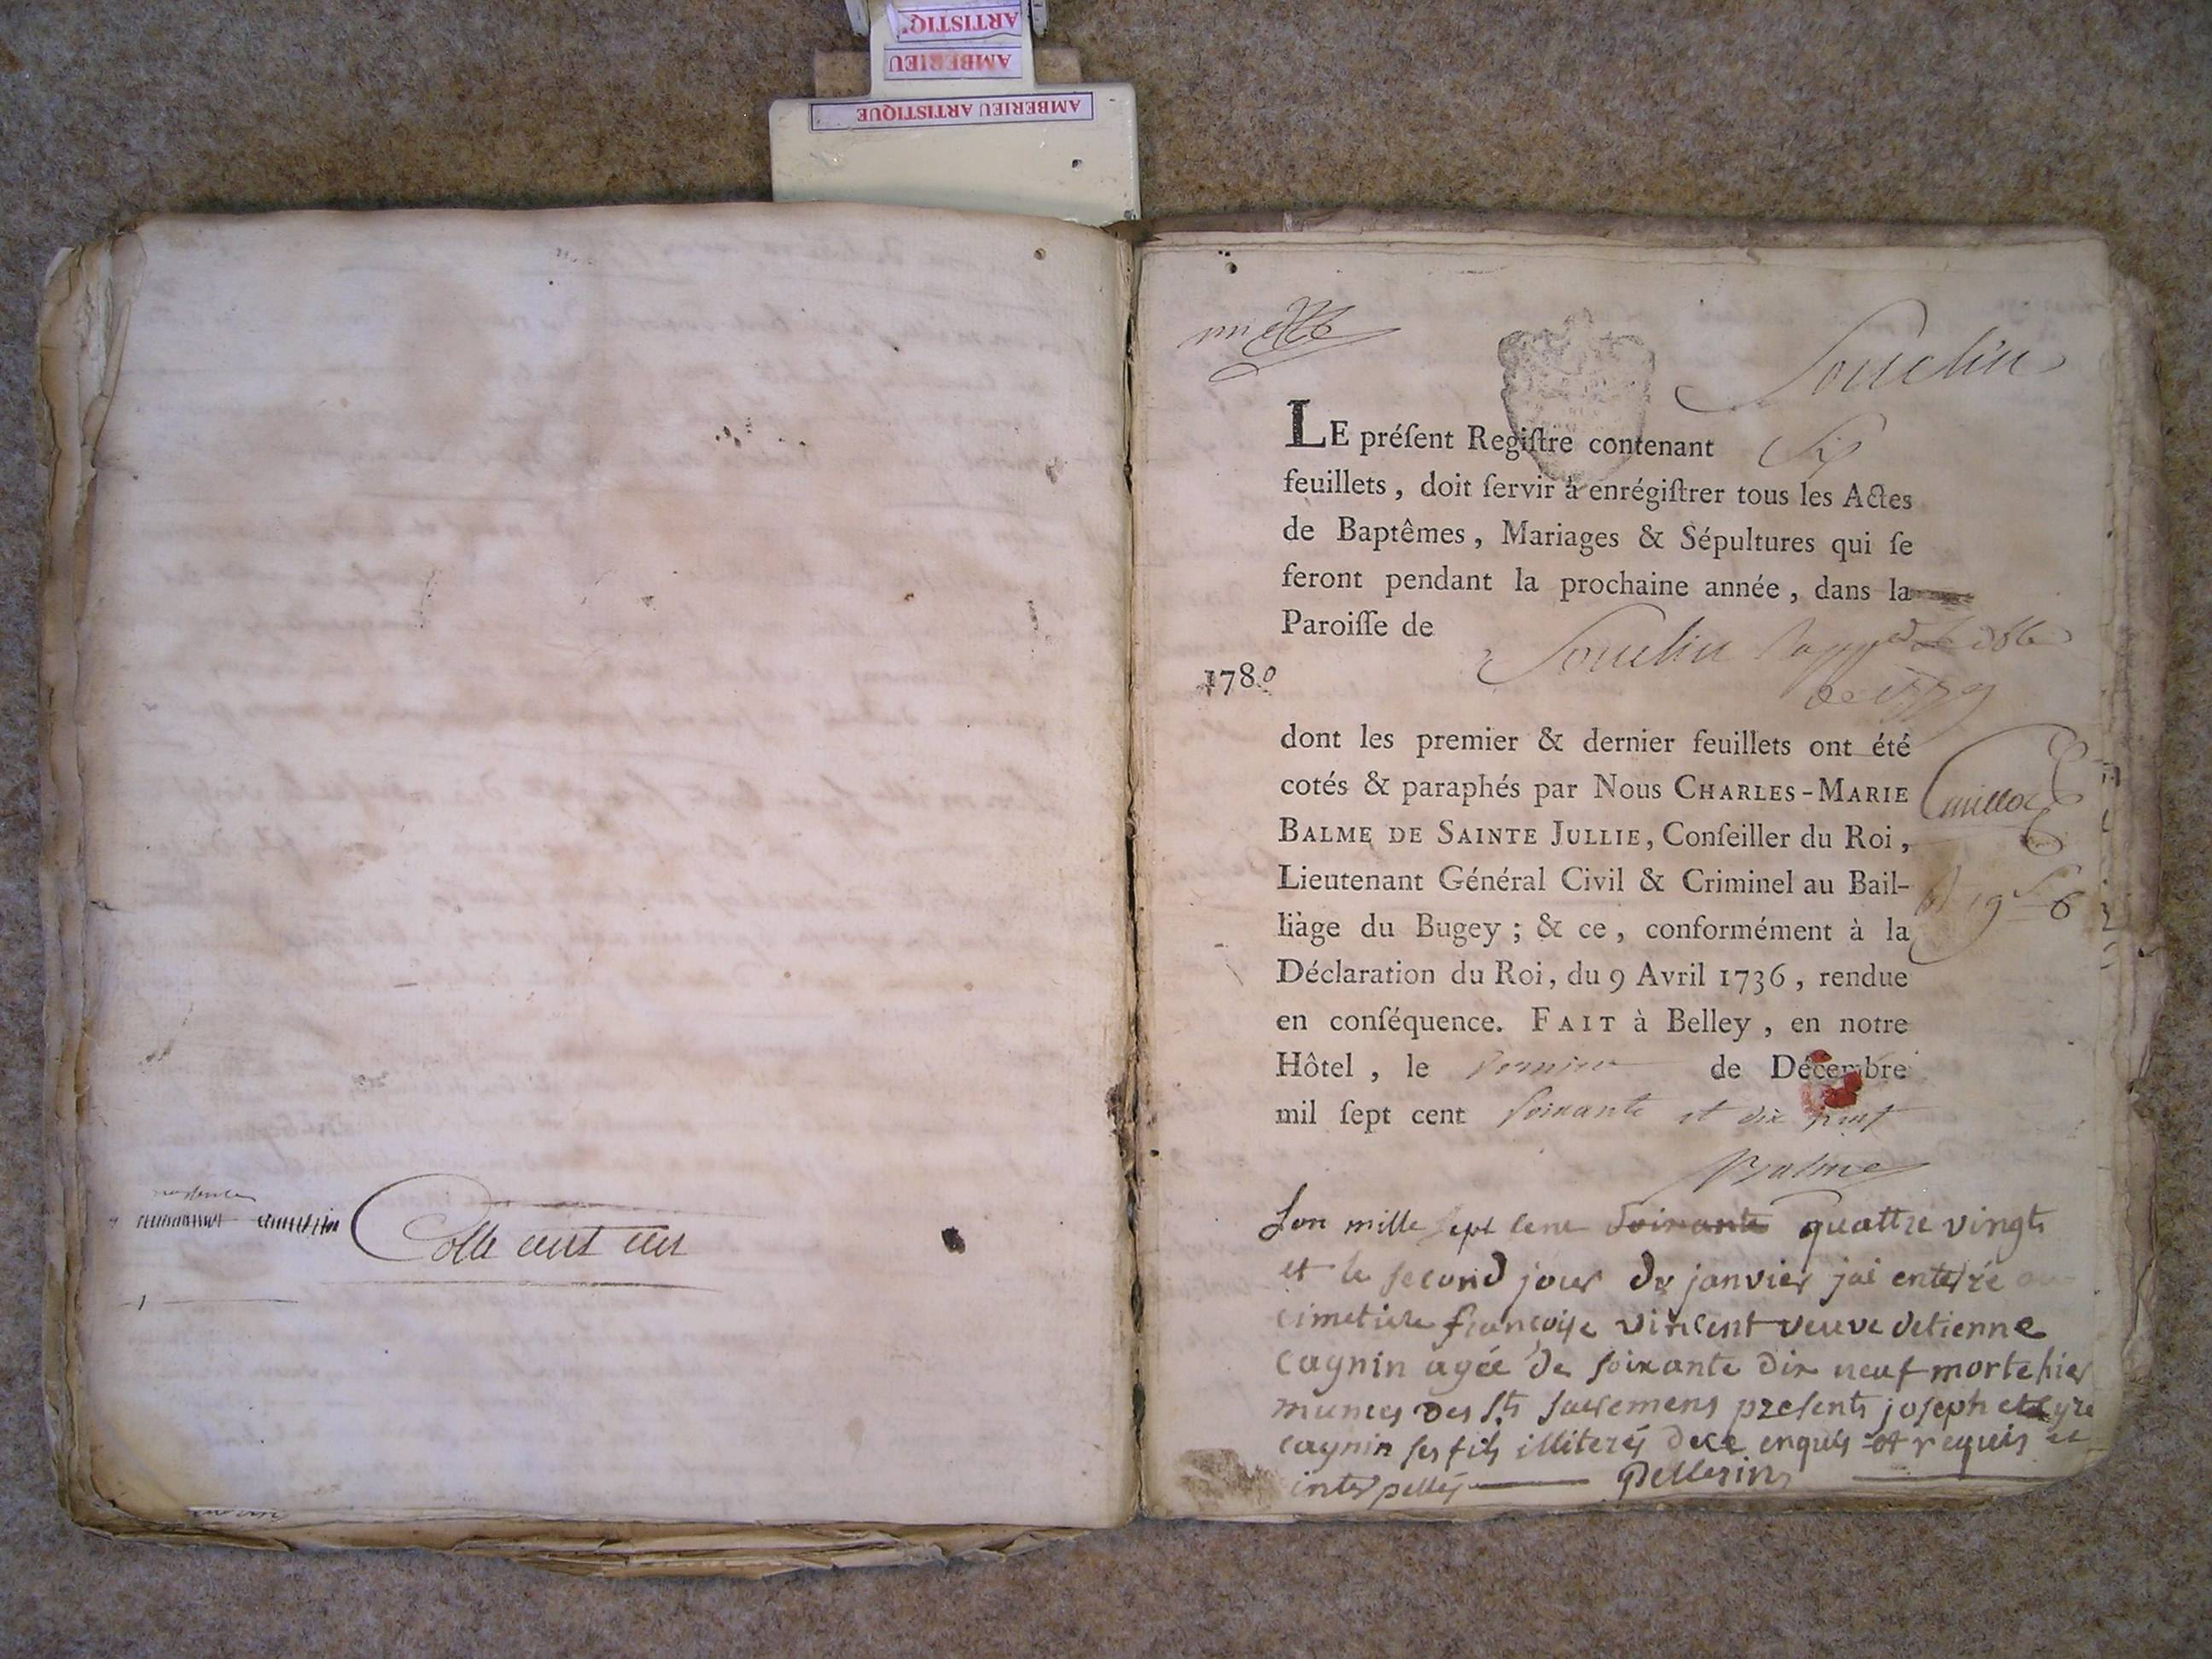 ARTISTIQ
AMBERIEU
AMBERIEU ARTISTIQUE
Cotte cent un
Souclin
LE préſent Regiſtre contenant Six
feuillets, doit ſervir à enrégiſtrer tous les Actes
de Baptêmes, Mariages & Sépultures qui ſe
feront pendant la prochaine année, dans la
Paroiſſe de Souclin
1780
dont les premier & dernier feuillets ont été
cotés & paraphés par Nous CHARLES-MARIE
BALME DE SAINTE JULLIE, Conſeiller du Roi,
Lieutenant Général Civil & Criminel au Bail-
liage du Bugey; & ce, conformément à la
Déclaration du Roi, du 9 Avril 1736, rendue
en conſéquence. FAIT à Belley, en notre
Hôtel, le dernier de Décembre
mil ſept cent soixante et dix neuf
Balme
Lan mille sept cent soixante quattre vingts
et le second jour de janvier jai enterré au
cimetiere francoise vincent veuve detienne
cagnin agée de soixante dix neuf morte hier
munies des sts sacremens presents joseph et
cagnin ses fils illiterés de ce enquis et requis et
interpellés Pellerin